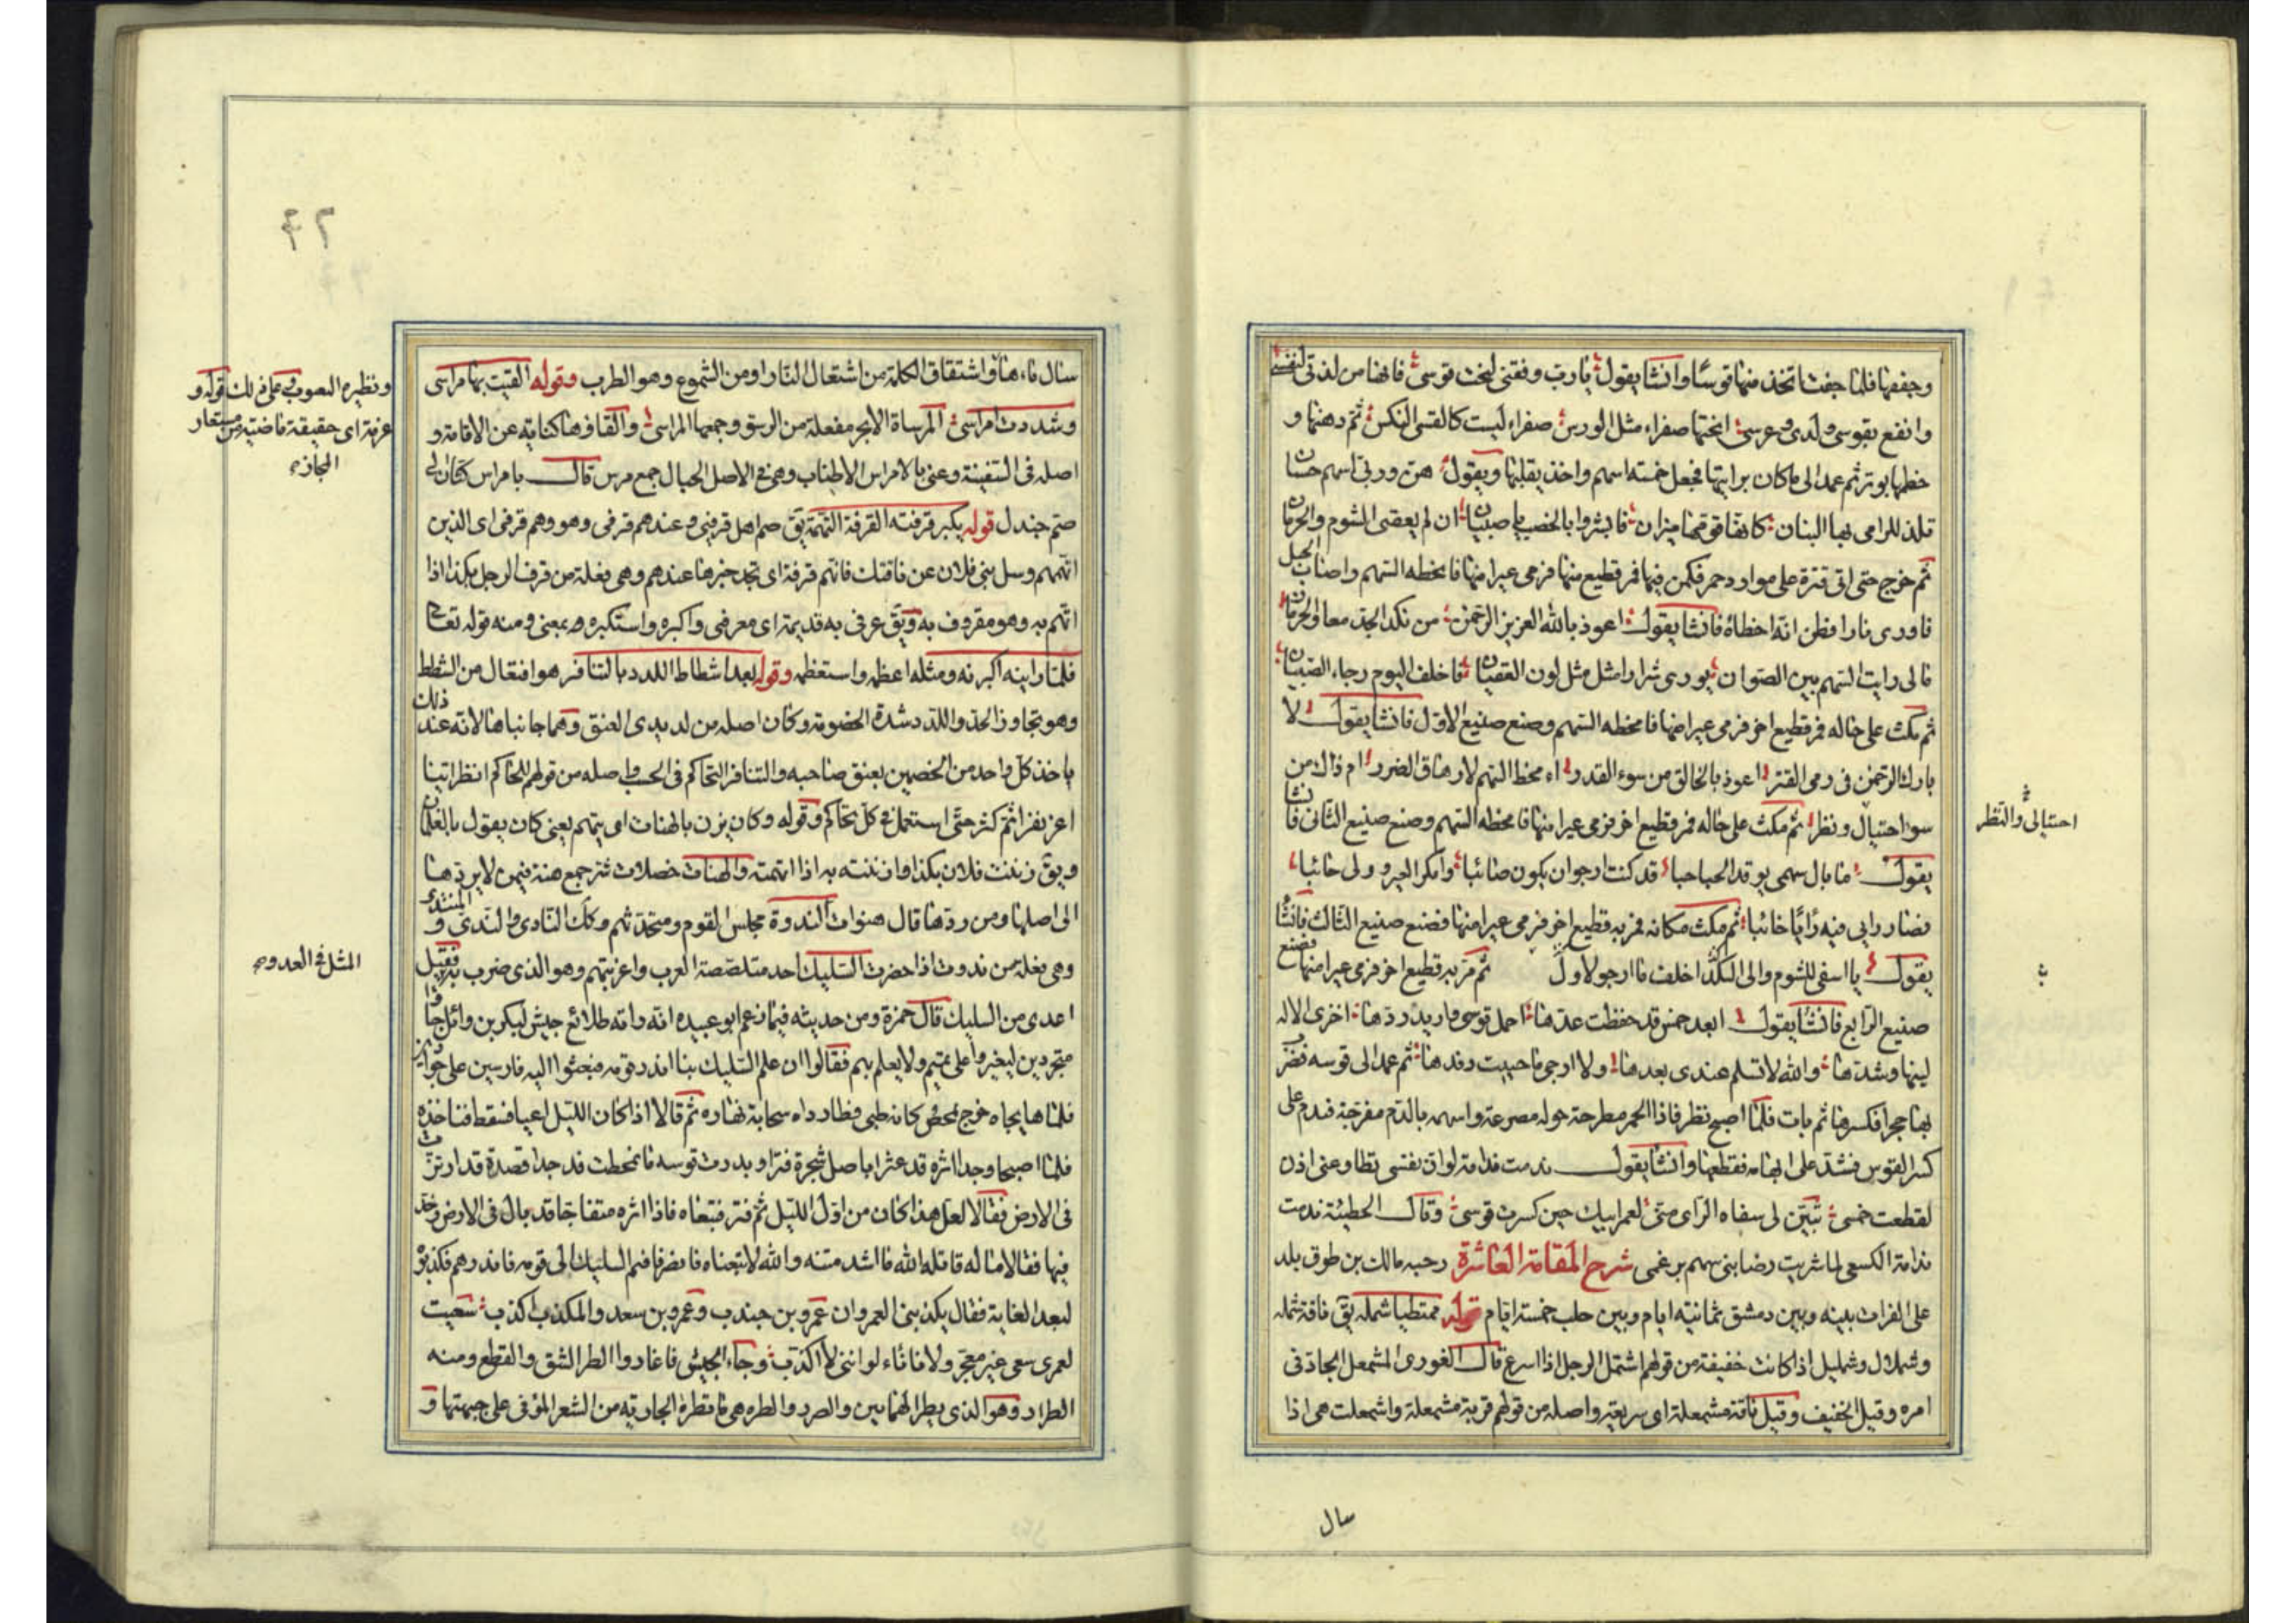 وجففها فلما جفت اتخذ منها قوسًا وانشا يقول يا رب وفقني لنحت قوسي فانها من لذتي لنفسي
وانفع بقوسي ولدي وعرسي انحتها صفراء مثل الورس صفراء ليست كالقسي النكس ثم دهنها و
خطمها بوتر ثم عمد الى ما كان برايتها فجعل خمسة اسهم واخذ يقلبها ويقول هن وربي اسهم حسان
تلذ للرامي بها البنان كانها قومها ميزان فابشروا بالخصب يا صبيان ان لم يعقني الشوم والحرمان
ثم خرج حتى اتى قترة على موارد حمر فكمن فيها فمر قطيع منها فرمى عيرا منها فامخطه السهم واصاب الجبل
فاورى نارا فظن انه اخطاه فانشا يقول اعوذ بالله العزيز الرحمن من نكد الجد معا والحرمان
مالي رايت السهم بين الصوان يوري شرارا مثل لون العقيان فاخلف اليوم رجاء الصبيان
ثم مكث على حاله فمر قطيع اخر فرمى عيرا منها فامخطه السهم وصنع صنيع الاول فانشا يقول لا
بارك الرحمن في رمي القتر اعوذ بالخالق من سوء القدر اء مخط السهم لارهاق الضرر ام ذاك من
سوء احتيال ونظر ثم مكث على حاله فمر قطيع اخر فرمى عيرا منها فامخطه السهم وصنع صنيع الثاني فانشا
احتيالي والنظر
يقول ما بال سهمي يوقد الحباحبا قد كنت ارجو ان يكون صائبا وامكر العير وولى جانبا
فصار رايي فيه رايا خائبا ثم مكث مكانه فمر به قطيع اخر فرمى عيرا منها فصنع صنيع الثالث فانشا
يقول يا اسفي للشوم والى النكد اخلف ما ارجو لاول ثم مر به قطيع اخر فرمى عيرا منها فصنع
صنيع الرابع فانشا يقول ابعد خمس قد حفظت عدها احمل قوسي واريد ردها اخزى الاله
لينها وشدها والله لا تسلم عندي بعدها ولا ارجي ما حييت رفدها ثم عمد الى قوسه فضرب
بها حجرا فكسرها ثم بات فلما اصبح نظر فاذا الحمر مطرحة حوله مصرعة واسهمه بالدم مضرجة فندم على
كسر القوس فشد على ابهامه فقطعها وانشا يقول ندمت ندامة لو ان نفسي تطاوعني اذن
لقطعت خمسي تبين لي سفاه الراي مني لعمر ابيك حين كسرت قوسي وقال الحطيئة ندمت
ندامة الكسعي لما شريت رضا بني سهم برغمي شرح المقامة العاشرة رحبه مالك بن طوق بلد
على الفرات بينه وبين دمشق ثمانية ايام وبين حلب خمسة ايام قوله ممتطيا شملة يق ناقة شملة
وشملال وشمليل اذا كانت خفيفة من قولهم اشتمل الرجل اذا اسرع قال الغوري المشمعل الجاد في
امره وقيل الخفيف وقيل ناقة مشمعلة اي سريعة واصله من قولهم قربة مشمعلة واشمعلت هي اذا
سال
٤٢
سال ماءها واشتقاق الكلمة من اشتعال النار او من الشموع وهو الطرب وقوله القيت بها مراسي
ونظيره
قوله و
عزمة اي حقيقة ماضية من مستعار
المجاز
وشددت امراسي المرساة الانجر مفعلة من الرسو وجمعها المراسي والقاؤها كناية عن الاقامة و
اصله في السفينة وعني بالامراس الاطناب وهي في الاصل الحبال جمع مرس قال بامراس كتان الى
صم جندل قوله يكبر قرفته القرفة التهمة يق هم اهل قرفتي وعندهم قرفتي وهو وهم قرفتي اي الذين
اتهمهم وسل بني فلان عن ناقتك فانهم قرفة اي تجد خبرها عندهم وهي فعلة من قرف الرجل بكذا اذا
اتهم به وهو مقروف به ويق عرفني به قديمة اي معرفتي واكبره واستكبره بمعنى ومنه قوله تعالى
فلما راينه اكبرنه ومثله اعظمه واستعظمه وقوله بعد اشطاط اللدد بالتنافر هو افتعال من الشطط
وهو تجاوز الحد واللدد شدة الخصومة وكان اصله من لديدي العنق وهما جانباها لانه عند ذلك
ياخذ كل واحد من الخصمين بعنق صاحبه والتنافر التحاكم في الحسب واصله من قولهم للحاكم انظر اينا
اعز نفرا ثم كثر حتى استعمل في كل تحاكم وقوله وكان يزن بالهنات اي يتهم يعني كان يقول بالغلمان
ويق زننت فلان بكذا وازننته به اذا اتهمته والهنات خصلات شر جمع هنة فيمن لا يردها
الى اصلها ومن ردها قال هنوات الندوة مجلس القوم ومتحدثهم وكذلك النادي والندي و المنتدى
وهي فعلة من ندوت اذا حضرت السليك احد متلصصة العرب واعزيتهم وهو الذي ضرب به فقيل
المثل في العدو
اعدى من السليك قال حمزة ومن حديثه فيما زعم ابو عبيده انه راته طلائع جيش لبكر بن وائل جاؤا
متجردين ليغيروا على تميم ولا يعلم بهم فقالوا ان علم السليك بنا انذر قومه فبعثوا اليه فارسين على جوادين
فلما هايجاه خرج يمحص كانه ظبي وطارداه سحابة نهاره ثم قالا اذا كان الليل اعيا فسقط فناخذه
فلما اصبحا وجدا اثره قد عثر باصل شجرة فنزا وبدرت قوسه فانحطمت فوجدا قصدة قد ارتزت
في الارض فقالا لعل هذا كان من اول الليل ثم فتر فتبعاه فاذا اثره متفاجا قد بال في الارض وخد
فيها فقالا ما له قاتله الله ما اشد متنه والله لا تبعناه فانصرفا فتم السليك الى قومه فانذرهم فكذبوه
لبعد الغاية فقال يكذبني العمران عمرو بن جندب وعمرو بن سعد والمكذب اكذب سعيت
لعمري سعي غير معجز ولا نانا لو انني لا اكذب وجاء الجيش فاغاروا الطر الشق والقطع ومنه
الطرار وهو الذي يطر الهمايين والصرر والطره هي ما تطره الجارية من الشعر الموفى على جبهتها و